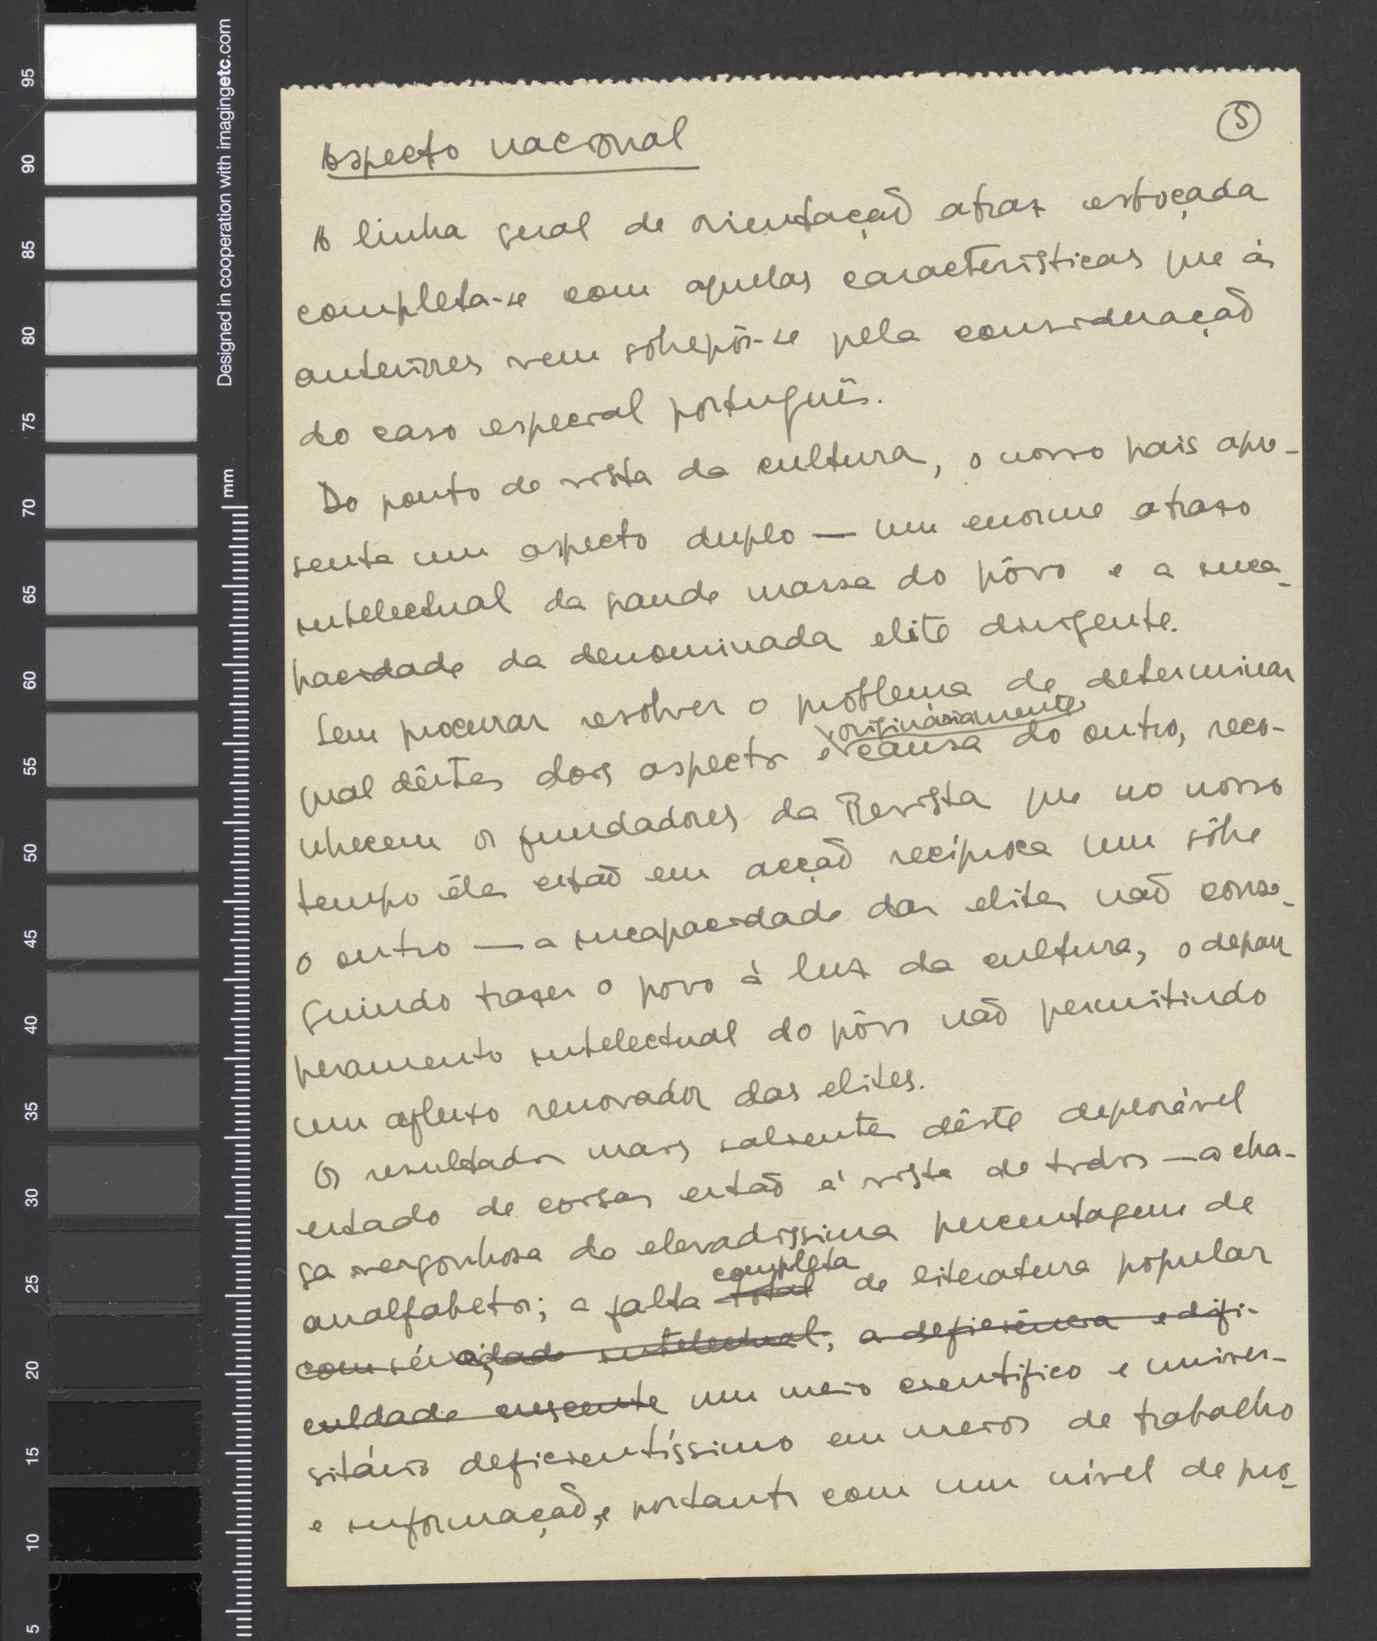 Designed in cooperation with imagingetc.com
mm
95
90
85
80
75
70
65
60
55
50
45
40
35
30
25
20
15
10
5
5
Aspecto nacional
A linha geral de orientação atraz esboçada
completa-se com aquelas características que às
anteriores vem sôbrepôr-se pela consideração
do caso especial português.
Do ponto de vista da cultura, o nosso pais apre-
senta um aspecto duplo — um enorme atrazo
intelectual da grande massa do pôvo e a inca-
pacidade da denominada elite dirigente.
Sem procurar resolver o problema de determinar
originàriamente
qual dêstes dois aspectos é causa do outro, reco-
nhecem os fundadores da Revista que no nosso
tempo êles estão em acção recíproca um sôbre
o outro — a incapacidade das elites não conse-
guindo trazer o povo à luz da cultura, o depau
peramento intelectual do pôvo não permitindo
um afluxo renovador das elites.
Os resultados mais salientes dêste deplorável
estado de coisas estão à vista de todos — a cha-
ga vergonhosa da elevadíssima percentagem de
completa
analfabetos; a falta total de literatura popular
com seriedade intelectual; a deficiência e difi-
culdade crescente um meio cientifico e univer-
sitário deficientíssimo em meios de trabalho
e informação, e portanto com um nível de pro-